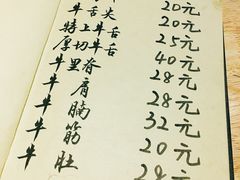 尖 20元
牛舌 20元
特上牛舌 25元
厚切牛舌 40元
牛里脊 28元
牛肩 28元
牛腩 32元
牛筋 20元
牛肚 元